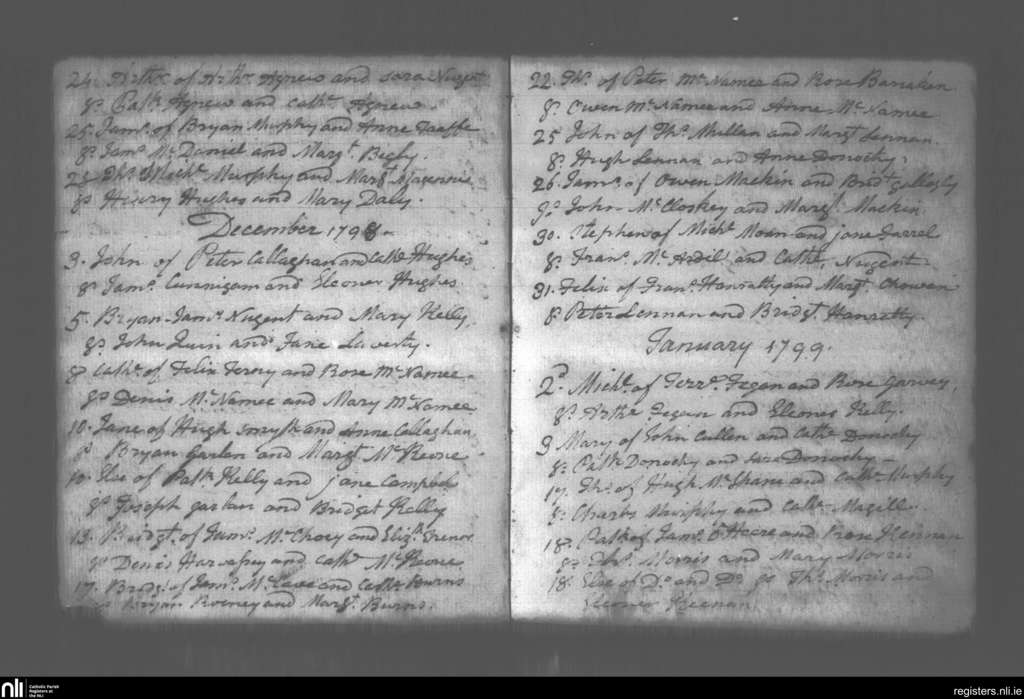 24. Arthr. of Arthr. Agnew and Sara Nugent
gs. Patk. Agnew and Cathe. Agnew.
25. Jams. of Bryan Murphy and Anne Taaffe
gs. Jams. Mc Daniel and Margt. Begly.
Michl. Murphy and Margt. Magennis
gs. Henry Hughes and Mary Daly.
December 1798.
3. John of Peter Callaghan and Cathe. Hughes
gs. Jams. Cunnigam and Eleoner Hughes.
5. Bryan Jams. Nugent and Mary Kelly.
gs. John Quin and Jane Laverty.
8 Cathe. of Felix Ferny and Rose Mc. Namee.
gs. Denis Mc. Namee and Mary Mc Namee
10. Jane of Hugh Smyth and Anne Callaghan,
gs. Bryan Garlan and Margt. Mc Keone
10. Elsе of Patk. Kelly and Jane Campbel
gs. Joseph Garlan and Bridget Kelly
13. Bridgt. of Jams. Mc. and Elizth. Trenor
gs. Denis and Cathe. Mc. Keone
17. Bridgt. of Jams. Mc. and Cathe. Burns
gs. Bryan Rooney and Margt. Burns.
22. Ths. of Peter Mc. Namee and Rose
gs. Owen Mc. Namee and Anne Mc. Namee
25 John of Ths. Mullan and Margt. Lennan.
gs. Hugh Lennan and Anne Donochy.
26. Jams. of Owen Mackin and Bridt. Gollogly
gs. John Mc. Closkey and Margt. Mackin.
30. Stephen of Michl. Moan and Jane Farrel
gs. Frans. Mc. Ardil and Cathe. Nugent
31. Felix of Frans. Hanratty and Margt.
gs. Peter Lennan and Bridgt. Hanratty.
January 1799.
2d. Michl. of Terre. Fegan and Rose Garvey,
gs. Arthr. Fegan and Eleoner Kelly.
3 Mary of John Cullen and Cathe. Donochy
gs. Patk. Donochy and Sara Donochy
17. Ths. of Hugh Mc. Shane and Cathe. Murphy
gs. Charles Murphy and Cathe. Magill.
18. Patk. of Jams. O Heare and Keenan
gs. Ths. Morris and Mary Morris
18. Else of Do. and Do. gs. Ths. Morris and
Eleoner Keenan.
nli
Catholic Parish
Registers at
the NLI
registers.nli.ie